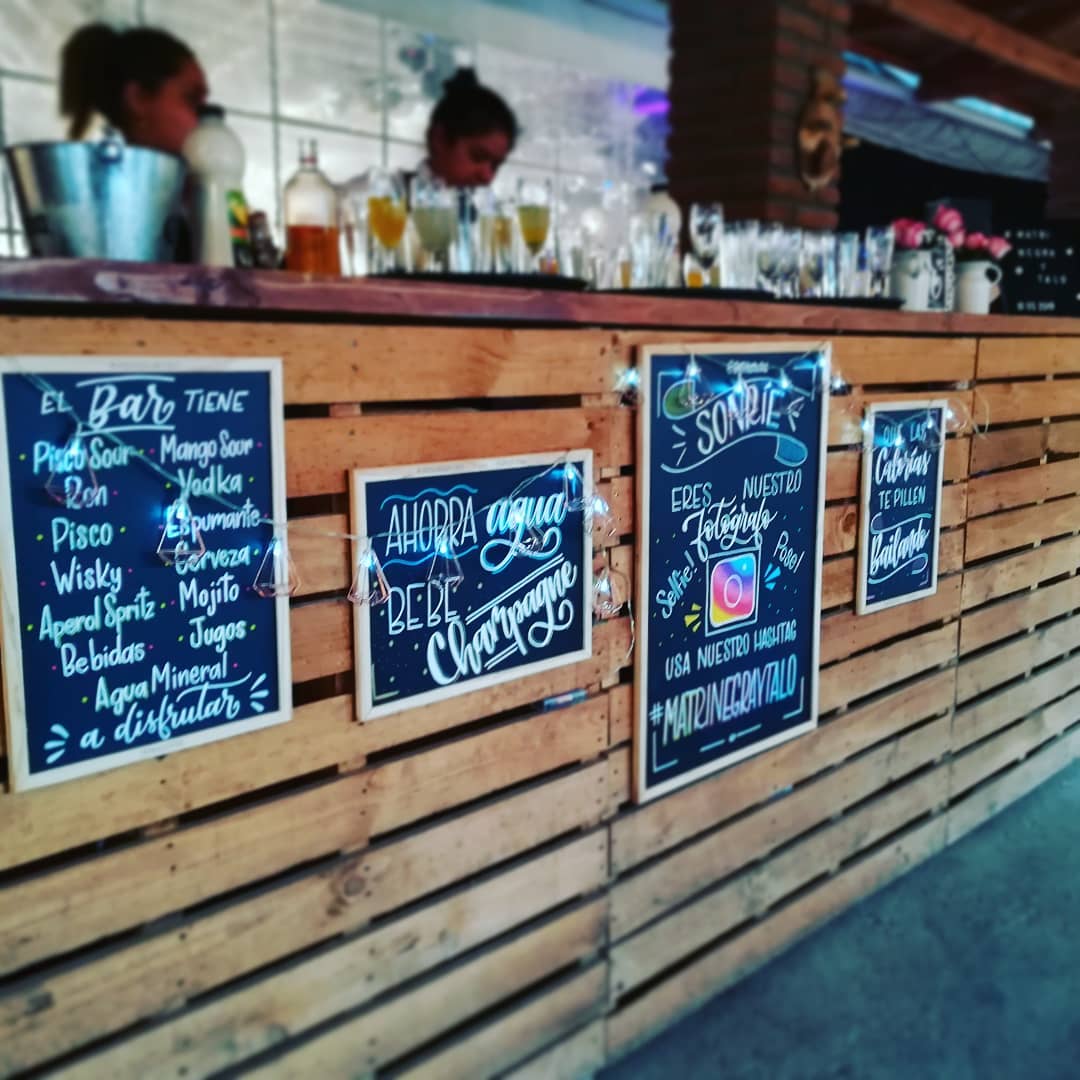 EL Bar TIENE
Pisco Sour · Mango Sour
Ron · Vodka
Pisco · Espumante
Wisky · Cerveza
Aperol Spritz · Mojito
Bebidas · Jugos
Agua Mineral
a disfrutar
AHORRA agua
BEBE
Champagne
SONRÍE
ERES NUESTRO
Fotógrafo
Selfie! Pose!
USA NUESTRO HASHTAG
#MATRINEGRAYTALO
QUE LAS
Calorías
TE PILLEN
Bailando
MATRI
NEGRA
Y
TALO